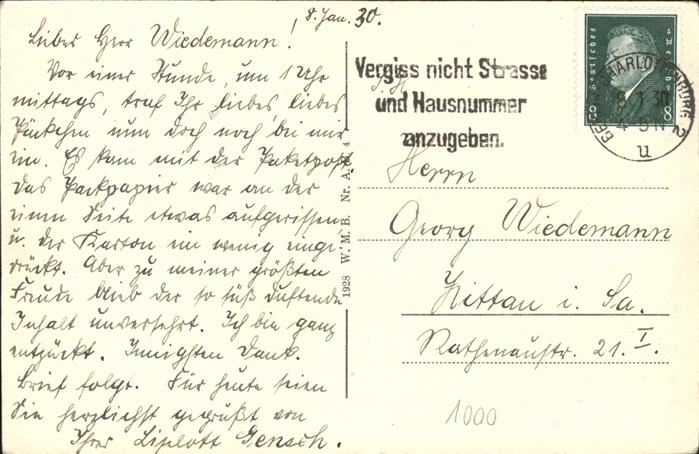 8. Jan. 30.
Lieber Herr Wiedemann!
Vor einer Stunde, um 1 Uhr
mittags, traf Ihr liebes, liebes
Päckchen nun doch noch bei mir
ein. Es kam mit der Paketpost.
Das Packpapier war an der
einen Seite etwas aufgerissen
u. der Karton ein wenig einge-
drückt. Aber zu meiner größten
Freude blieb der so süß duftende
Inhalt unversehrt. Ich bin ganz
entzückt. Innigsten Dank.
Brief folgt. Für heute seien
Sie herzlichst gegrüßt von
Ihrer Liselott Gensch.
1928 W. M. B. Nr. A. 4
Vergiss nicht Strasse
und Hausnummer
anzugeben.
Deutsches Reich
8 8
BERLIN-CHARLOTTENBURG 2
8.1.30
4-5 N
u
Herrn
Georg Wiedemann
Zittau i. Sa.
Rathenaustr. 21. I.
1000